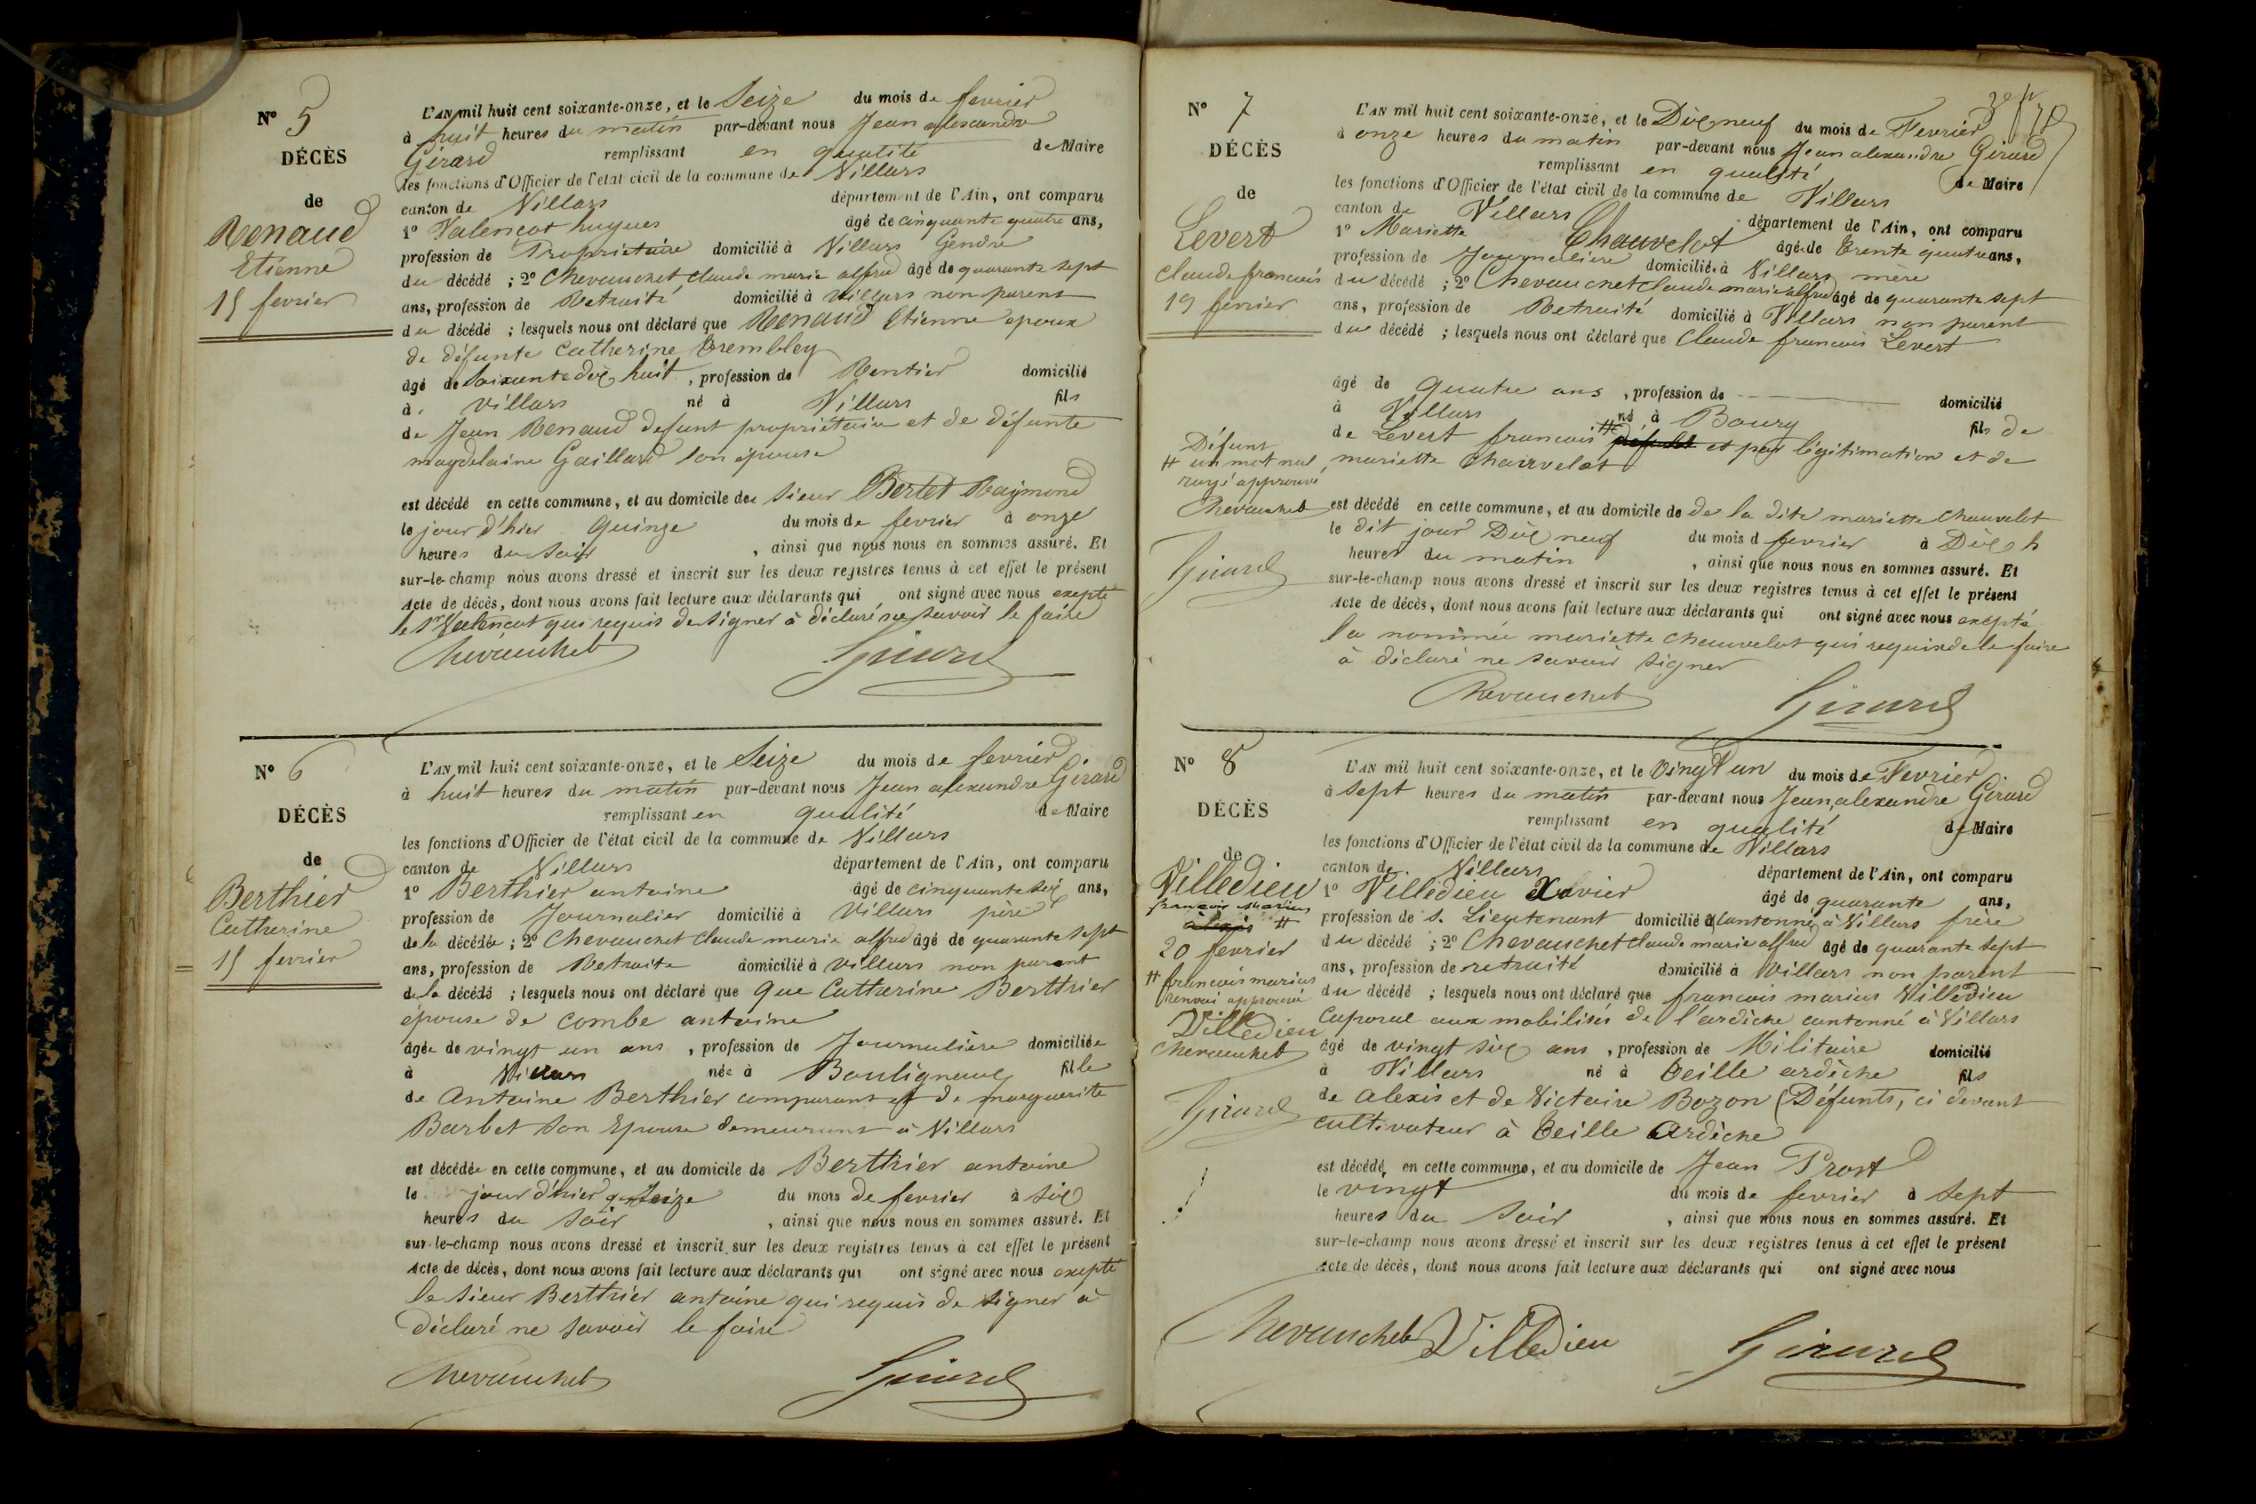 N° 5
DÉCÈS
de
Renaud
Etienne
15 fevrier
L'AN mil huit cent soixante-onze, et le Seize du mois de fevrier
à huit heures du matin par-devant nous Jean alexandre
Girard remplissant en qualité de Maire
les fonctions d'Officier de l'état civil de la commune de Villars
canton de Villars département de l'Ain, ont comparu
1° Valencot hugues âgé de cinquante quatre ans,
profession de Propriétaire domicilié à Villars Gendre
du décédé ; 2° Chevauchet Claude marie alfred âgé de quarante sept
ans, profession de Retraité domicilié à villars non parent
du décédé ; lesquels nous ont déclaré que Renaud Etienne epoux
de défunte Catherine Trembley
âgé de Soixante dix huit, profession de Rentier domicilié
à villars né à Villars fils
de Jean Renaud defunt propriétaire et de défunte
magdelaine Gaillard son épouse
est décédé en cette commune, et au domicile de Sieur Bertet Raymond
le jour d'hier quinze du mois de fevrier à onze
heures du soir, ainsi que nous nous en sommes assuré. Et
sur-le-champ nous avons dressé et inscrit sur les deux registres tenus à cet effet le présent
Acte de décès, dont nous avons fait lecture aux déclarants qui ont signé avec nous exepté
le Sr Valencot qui requis de signer à déclaré ne savoir le faire
Chevauchet Girard
N° 6
DÉCÈS
de
Berthier
Catherine
15 fevrier
L'AN mil huit cent soixante-onze, et le Seize du mois de fevrier
à huit heures du matin par-devant nous Jean alexandre Girard
remplissant en qualité de Maire
les fonctions d'Officier de l'état civil de la commune de Villars
canton de Villars département de l'Ain, ont comparu
1° Berthier antoine âgé de cinquante six ans,
profession de Journalier domicilié à Villars père
de la décédée ; 2° Chevauchet Claude marie alfred âgé de quarante sept
ans, profession de Retraité domicilié à villars non parent
de la décédé ; lesquels nous ont déclaré que que Catherine Berthier
épouse de combe antoine
âgée de vingt un ans, profession de Journalière domiciliée
à Villars née à Bouligneux fille
de Antoine Berthier comparant et de marguerite
Barbet son Epouse demeurant à Villars
est décédée en cette commune, et au domicile de Berthier antoine
le jour d'hier du mois de fevrier à six
heures du soir, ainsi que nous nous en sommes assuré. Et
sur-le-champ nous avons dressé et inscrit sur les deux registres tenus à cet effet le présent
Acte de décès, dont nous avons fait lecture aux déclarants qui ont signé avec nous exepté
le sieur Berthier antoine qui requis de signer à
déclaré ne savoir le faire
Chevauchet Girard
N° 7
DÉCÈS
de
Levert
Claude francois
19 fevrier
L'AN mil huit cent soixante-onze, et le Dix neuf du mois de Fevrier
à onze heures du matin par-devant nous Jean alexandre Girard
remplissant en qualité de Maire
les fonctions d'Officier de l'état civil de la commune de Villars
canton de Villars département de l'Ain, ont comparu
1° Mariette Chauvelot âgée de trente quatre ans,
profession de Journalière domiciliée à Villars mère
du décédé ; 2° Chevauchet Claude marie alfred âgé de quarante sept
ans, profession de Retraité domicilié à Villars non parent
du décédé ; lesquels nous ont déclaré que Claude francois Levert
âgé de quatre ans, profession de domicilié
à Villars né à Bourg fils de
de Levert francois # et par légitimation et de
mariette Chauvelot
Défunt
# un mot nul
rayé approuvé
Chevauchet
Girard
est décédé en cette commune, et au domicile de de la dite mariette Chauvelot
le dit jour Dix neuf du mois d fevrier à Dix h
heures du matin, ainsi que nous nous en sommes assuré. Et
sur-le-champ nous avons dressé et inscrit sur les deux registres tenus à cet effet le présent
Acte de décès, dont nous avons fait lecture aux déclarants qui ont signé avec nous exepté
la nommée mariette chauvelot qui requise de le faire
à déclaré ne savoir signer
Chevauchet Girard
N° 8
DÉCÈS
de
Villedieu
francois marius
alexis #
20 fevrier
# francois marius
renvoi approuvé
Villedieu
Chevauchet
Girard
L'AN mil huit cent soixante-onze, et le vingt un du mois de Fevrier
à sept heures du matin par-devant nous Jean alexandre Girard
remplissant en qualité de Maire
les fonctions d'Officier de l'état civil de la commune de Villars
canton de Villars département de l'Ain, ont comparu
1° Villedieu Xavier âgé de quarante ans,
profession de s. Lieutenant domicilié cantonné à Villars frère
du décédé ; 2° Chevauchet Claude marie alfred âgé de quarante sept
ans, profession de retraité domicilié à Villars non parent
du décédé ; lesquels nous ont déclaré que francois marius Villedieu
Caporal aux mobilisés de l'ardèche cantonné à Villars
âgé de vingt six ans, profession de Militaire domicilié
à Villars né à Teille ardèche fils
de alexis et de Victoire Bozon (Défunts, ci devant
cultivateur à Teille Ardèche
est décédé en cette commune, et au domicile de Jean Prost
le vingt du mois de fevrier à sept
heures du soir, ainsi que nous nous en sommes assuré. Et
sur-le-champ nous avons dressé et inscrit sur les deux registres tenus à cet effet le présent
Acte de décès, dont nous avons fait lecture aux déclarants qui ont signé avec nous
Chevauchet Villedieu Girard